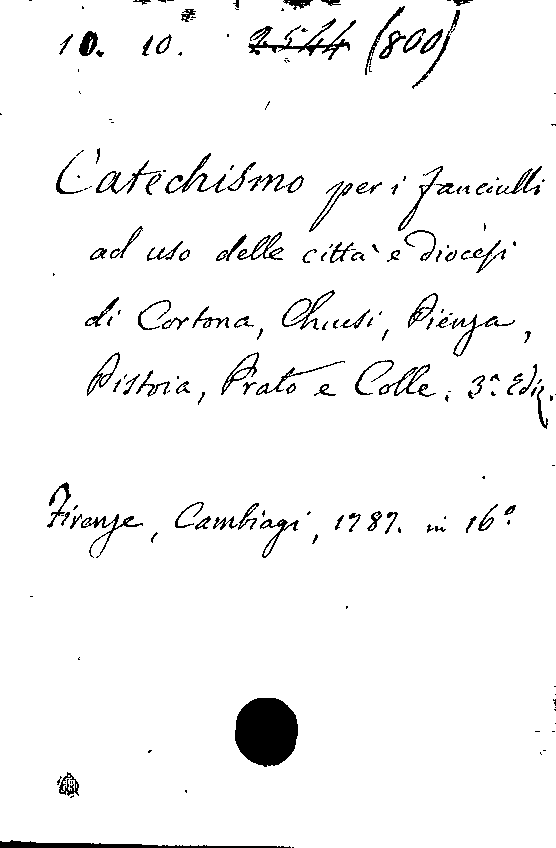 10. 10. 2544 (800)
Catechismo per i fanciulli
ad uso delle città e diocesi
di Cortona, Chiusi, Pienza,
Pistoia, Prato e Colle. 3ª Ediz.
Firenze, Cambiagi, 1787. in 16º.